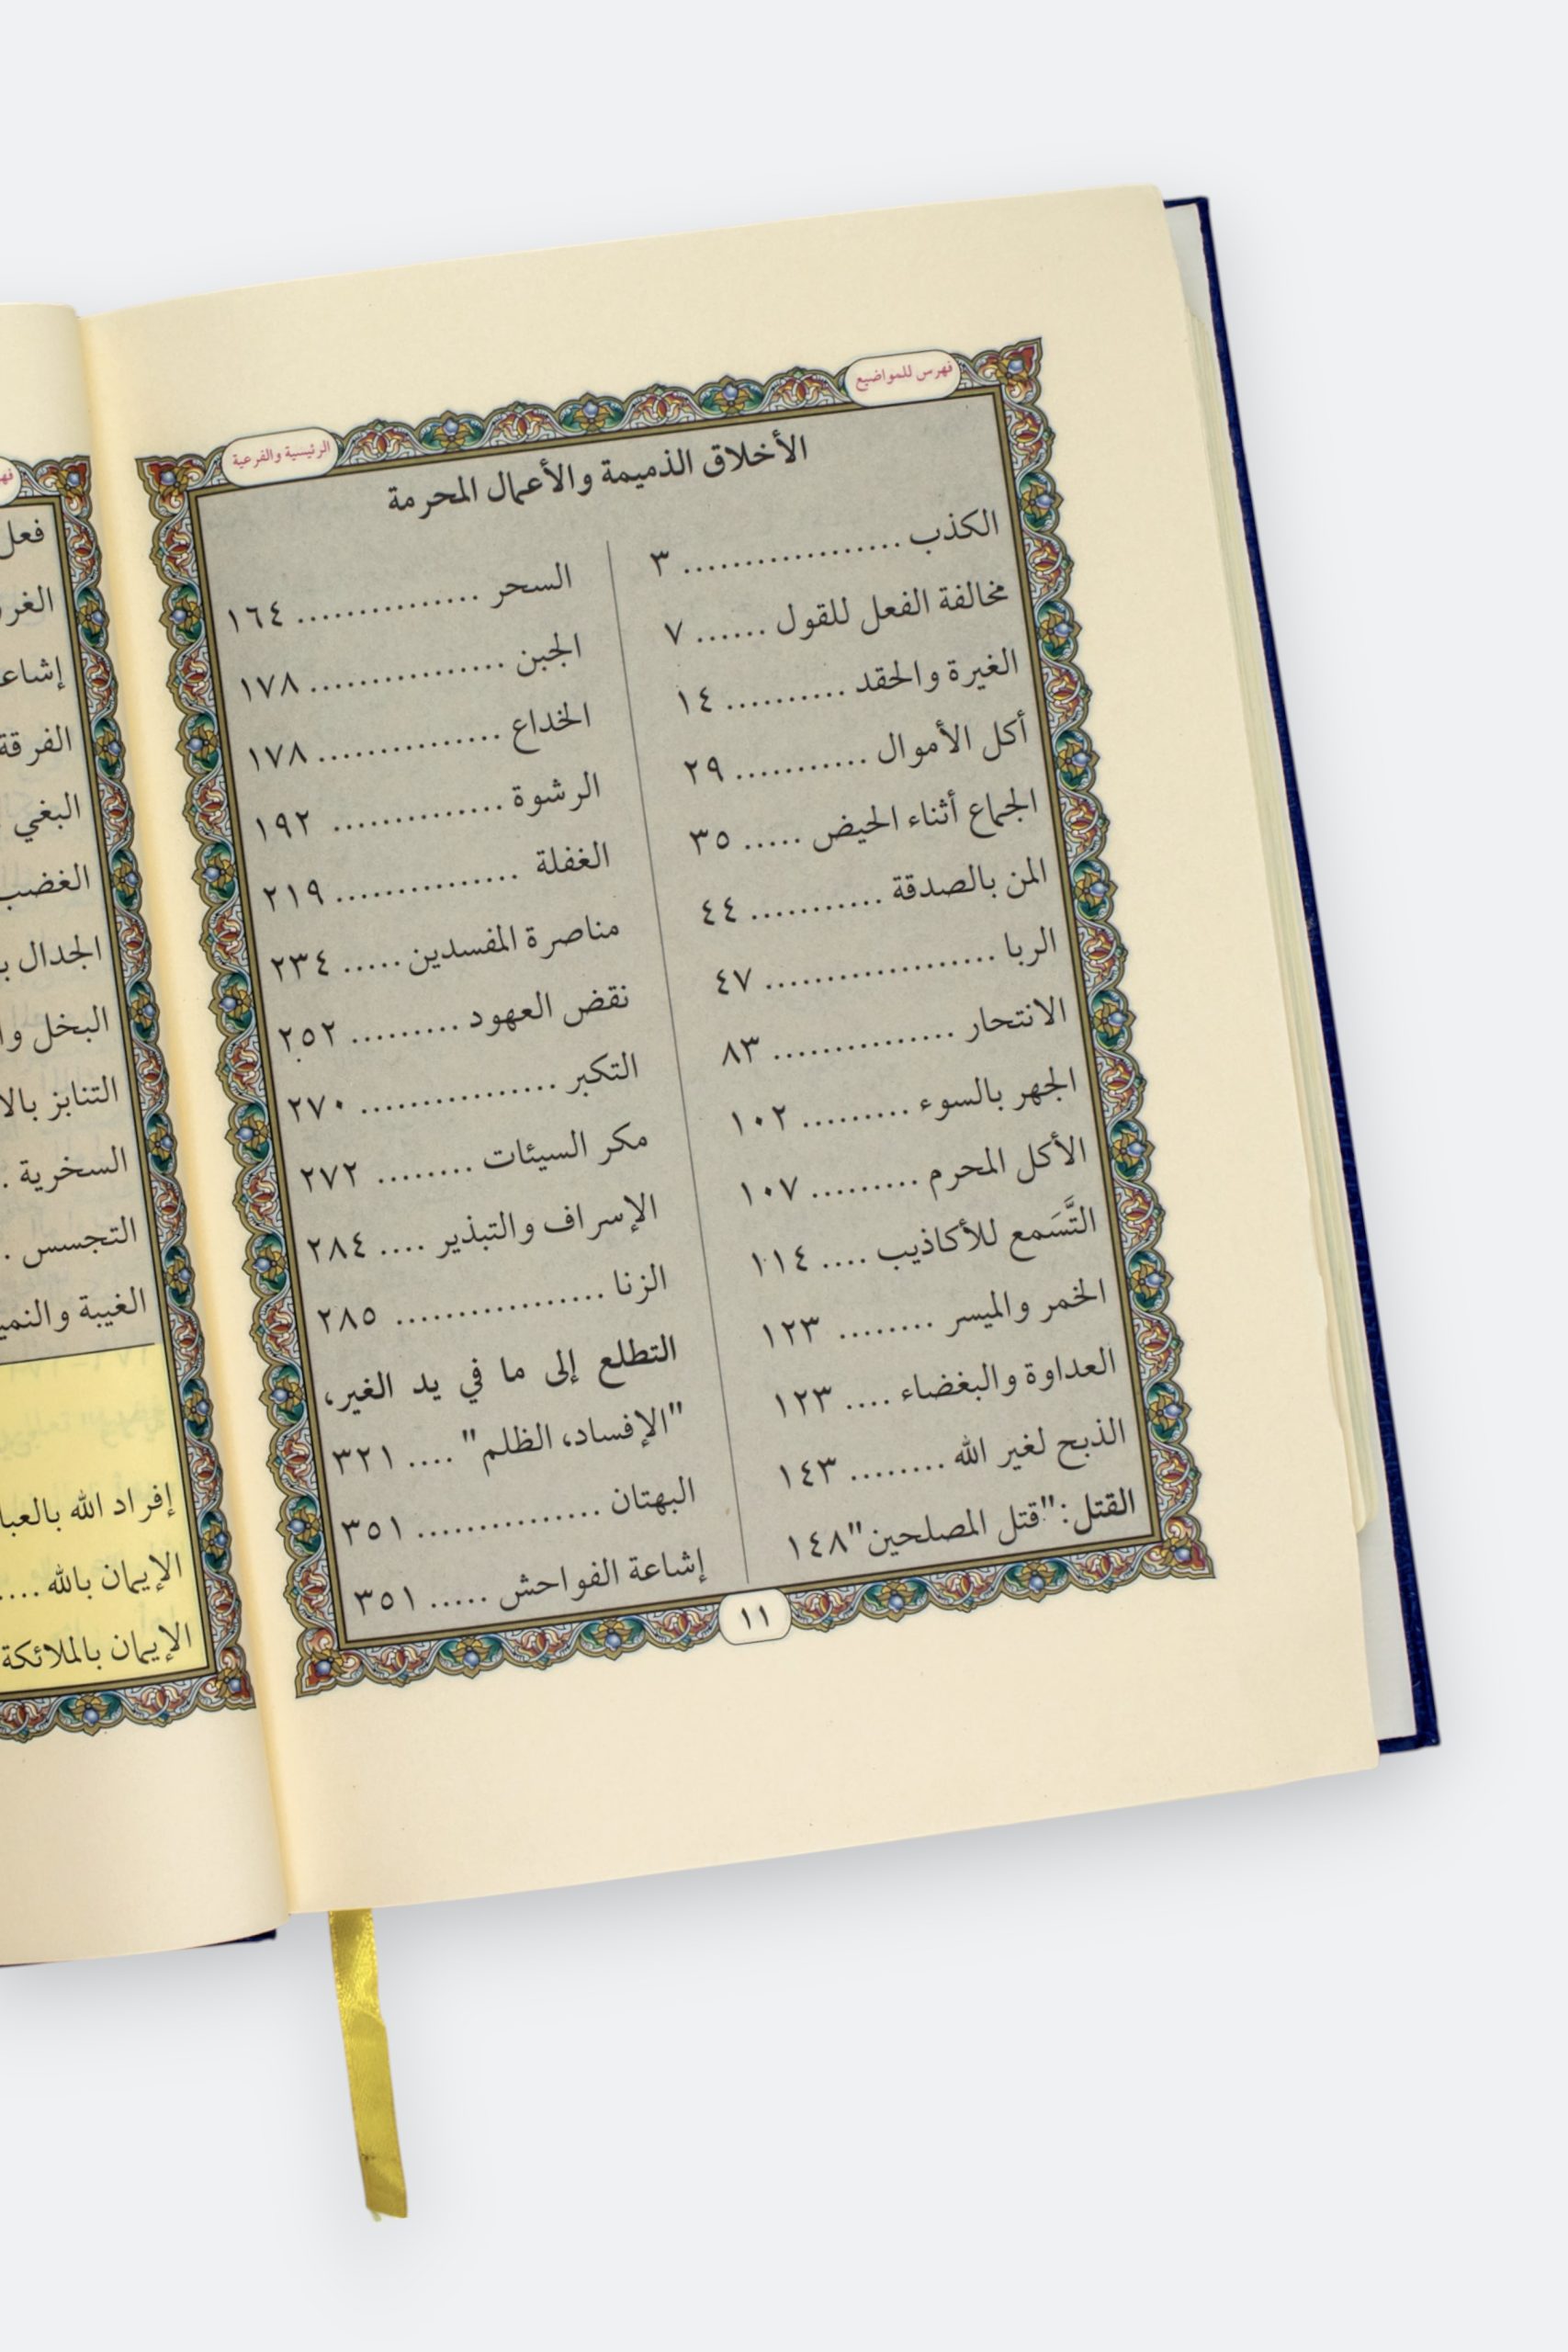 فهرس للمواضيع
الرئيسية والفرعية
الأخلاق الذميمة والأعمال المحرمة
الكذب .................. ٣
مخالفة الفعل للقول ...... ٧
الغيرة والحقد .......... ١٤
أكل الأموال ........... ٢٩
الجماع أثناء الحيض ..... ٣٥
المن بالصدقة ........... ٤٤
الربا ................... ٤٧
الانتحار ............... ٨٣
الجهر بالسوء ......... ١٠٢
الأكل المحرم ......... ١٠٧
التَّسَمع للأكاذيب .... ١١٤
الخمر والميسر ........ ١٢٣
العداوة والبغضاء .... ١٢٣
الذبح لغير الله ........ ١٤٣
القتل: "قتل المصلحين" ١٤٨
السحر ............... ١٦٤
الجبن ................ ١٧٨
الخداع ............... ١٧٨
الرشوة .............. ١٩٢
الغفلة ............... ٢١٩
مناصرة المفسدين ..... ٢٣٤
نقض العهود ......... ٢٥٢
التكبر ................ ٢٧٠
مكر السيئات ........ ٢٧٢
الإسراف والتبذير .... ٢٨٤
الزنا ................. ٢٨٥
التطلع إلى ما في يد الغير،
"الإفساد، الظلم" .... ٣٢١
البهتان ............... ٣٥١
إشاعة الفواحش ..... ٣٥١
١١
فعل
الفرقة
البغي
الغضب
الجدال
البخل
التنابز
السخرية .
التجسس .
الغيبة
إفراد الله
الإيمان بالله ....
الإيمان بالملائكة